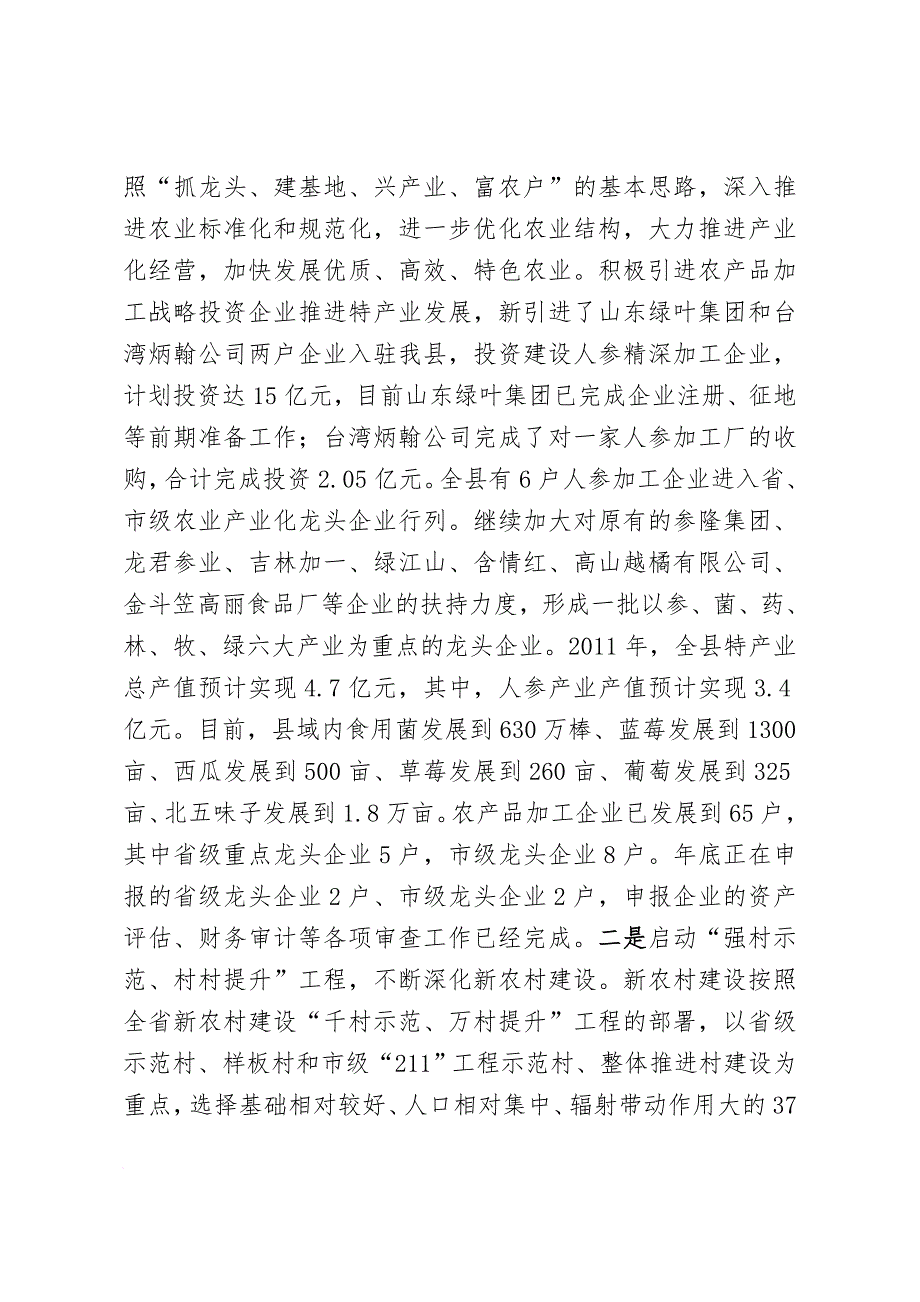 照“抓龙头、建基地、兴产业、富农户”的基本思路，深入推
进农业标准化和规范化，进一步优化农业结构，大力推进产业
化经营，加快发展优质、高效、特色农业。积极引进农产品加
工战略投资企业推进特产业发展，新引进了山东绿叶集团和台
湾炳翰公司两户企业入驻我县，投资建设人参精深加工企业，
计划投资达 15 亿元，目前山东绿叶集团已完成企业注册、征地
等前期准备工作；台湾炳翰公司完成了对一家人参加工厂的收
购，合计完成投资 2.05 亿元。全县有 6 户人参加工企业进入省、
市级农业产业化龙头企业行列。继续加大对原有的参隆集团、
龙君参业、吉林加一、绿江山、含情红、高山越橘有限公司、
金斗笠高丽食品厂等企业的扶持力度，形成一批以参、菌、药、
林、牧、绿六大产业为重点的龙头企业。2011 年，全县特产业
总产值预计实现 4.7 亿元，其中，人参产业产值预计实现 3.4
亿元。目前，县域内食用菌发展到 630 万棒、蓝莓发展到 1300
亩、西瓜发展到 500 亩、草莓发展到 260 亩、葡萄发展到 325
亩、北五味子发展到 1.8 万亩。农产品加工企业已发展到 65 户，
其中省级重点龙头企业 5 户，市级龙头企业 8 户。年底正在申
报的省级龙头企业 2 户、市级龙头企业 2 户，申报企业的资产
评估、财务审计等各项审查工作已经完成。二是启动“强村示
范、村村提升”工程，不断深化新农村建设。新农村建设按照
全省新农村建设“千村示范、万村提升”工程的部署，以省级
示范村、样板村和市级“211”工程示范村、整体推进村建设为
重点，选择基础相对较好、人口相对集中、辐射带动作用大的 37